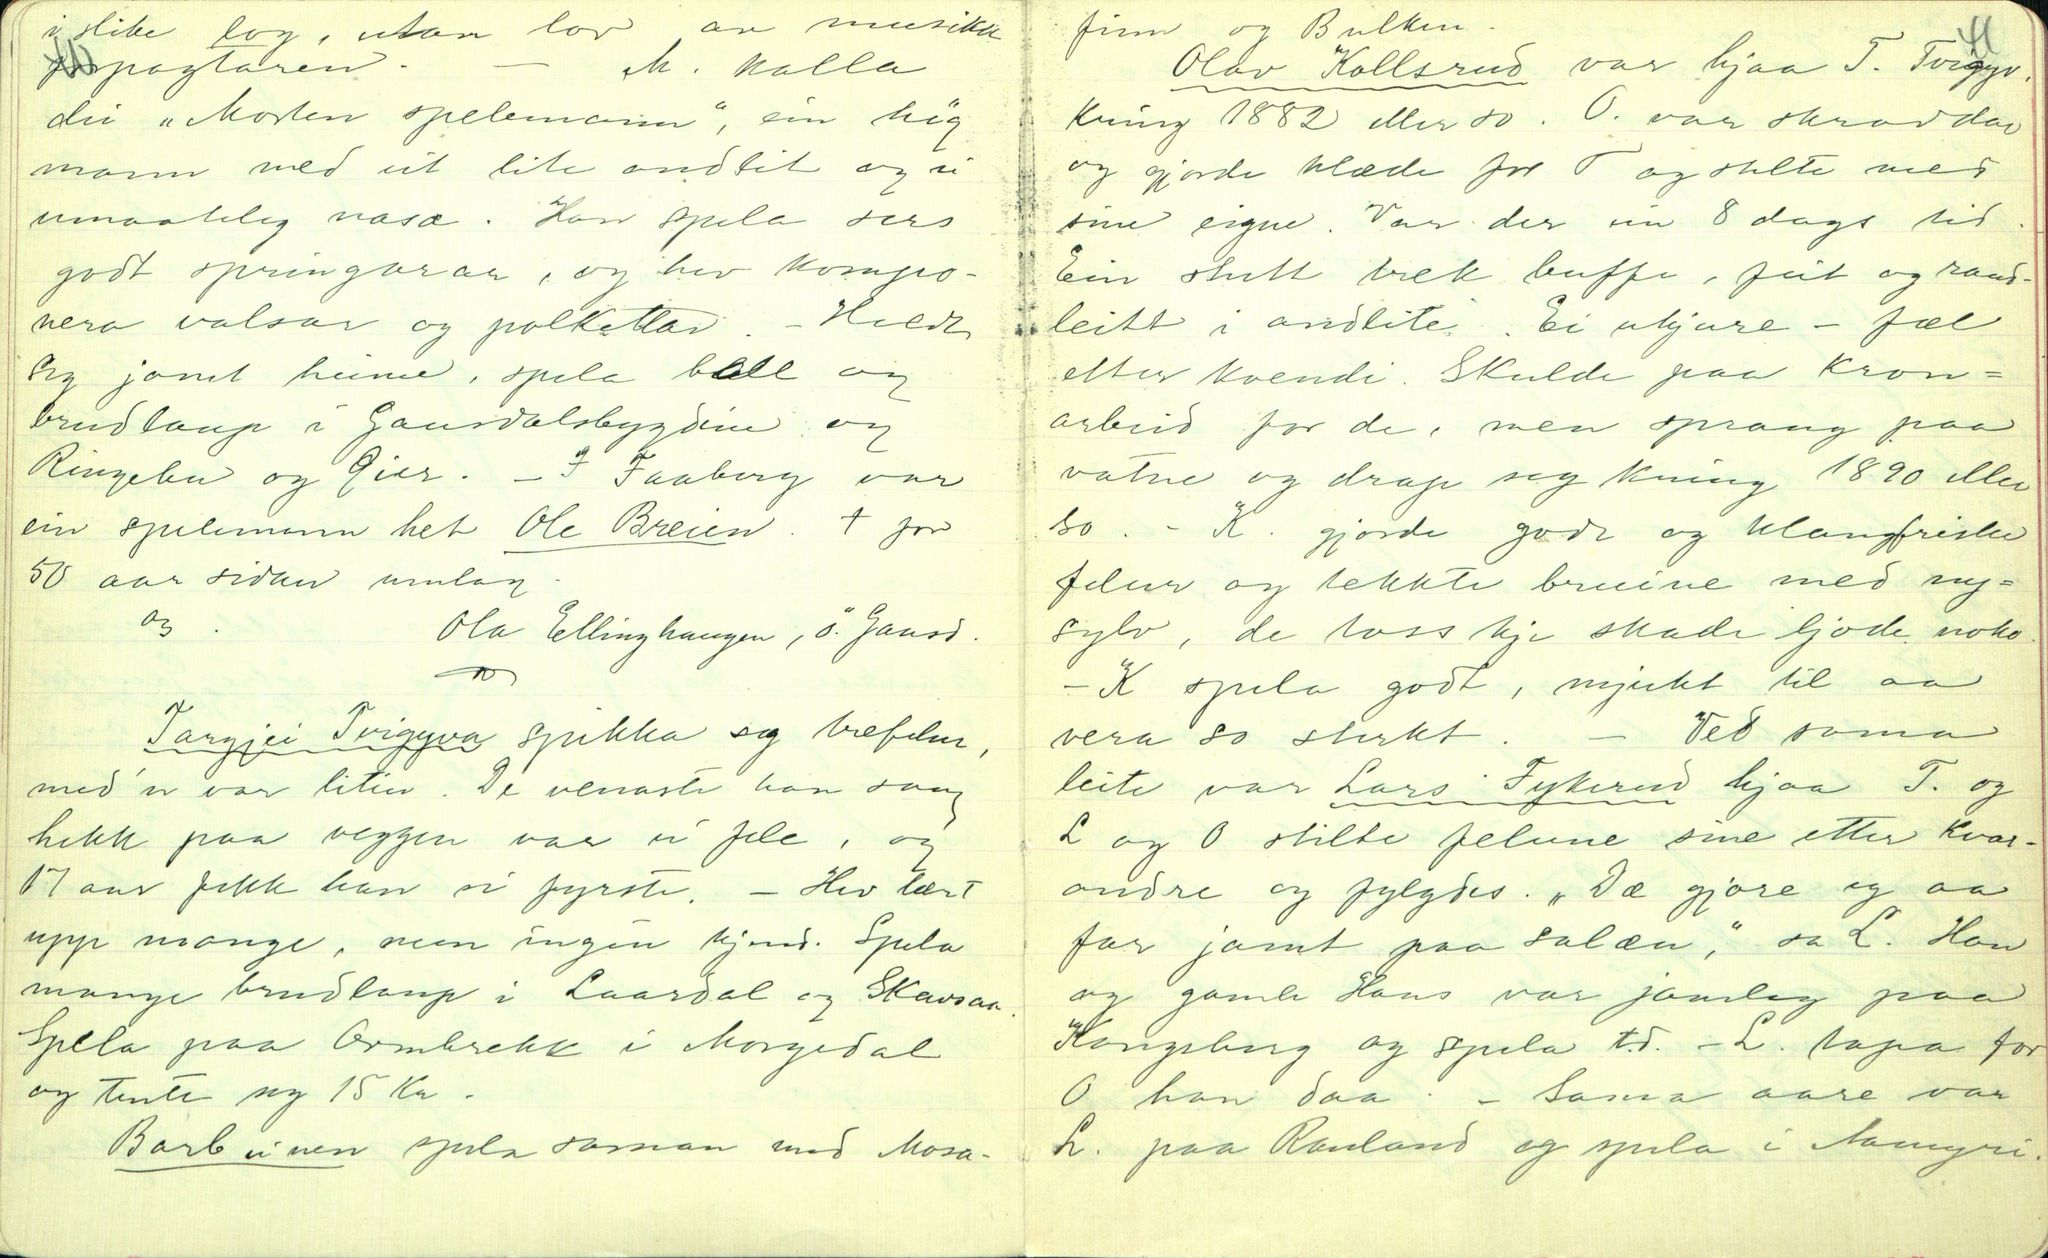 i slike log, utan lov av musikk
forpagtaren. — M. kalla
dei „Morten spelemann", ein høg
mann med eit lite andlit og ei
umaatelig nase. Han spela sers
godt springarar, og hev kompo-
nera valsar og polkettar. — Heldt
seg jamt heime, spela ball og
brudlaup i Gausdalsbygdine og
Ringebu og Øier. — I Faaberg var
ein spelemann het Ole Breien. † for
50 aar sidan umlag.
og
Ola Ellinghaugen, ö. Gausd.
Targjei Tvigyva spikka seg trefelur,
med'n var liten. De venaste han saag
hekk paa veggen var ei fele, og
17 aar fekk han si fyrste. — Hev lært
upp mange, men ingen kjend. Spela
mange brudlaup i Laardal og Skavsaa.
Spela paa Ormbrekk i Morgedal
og tente seg 15 Kr.
Barbeinen spela saman med Mosa-
finn og Bulken.
41
Olav Kollsrud var hjaa T. Tvigyv.
kring 1882 eller so. O. var skraddar
og gjorde klæde for T og stelte med
sine eigne. Var der ein 8 dags tid.
Ein stutt trek buffe, feit og raud-
leitt i andlite. Ei ukjure — fæl
etter kvendi. Skulde paa Kron=
arbeid for de, men sprang paa
vatne og drap seg kring 1890 eller
so. - K. gjorde gode og klangfriske
felur og tekkte bruine med ny=
sylv, de toss kje skade ljode noko.
— K spela godt, mjukt til aa
vera so sterkt. — Ved sama
leite var Lars Fykerud hjaa T. og
L og O stilte felune sine etter kvar-
andre og fylgdes. „Dæ gjore eg aa
far jamt paa salæn," sa L. Han
og gamle Hans var jamleg paa
Kongsberg og spela t.d. — L. tapa for
O han daa. — Sama aare var
L. paa Rauland og spela i